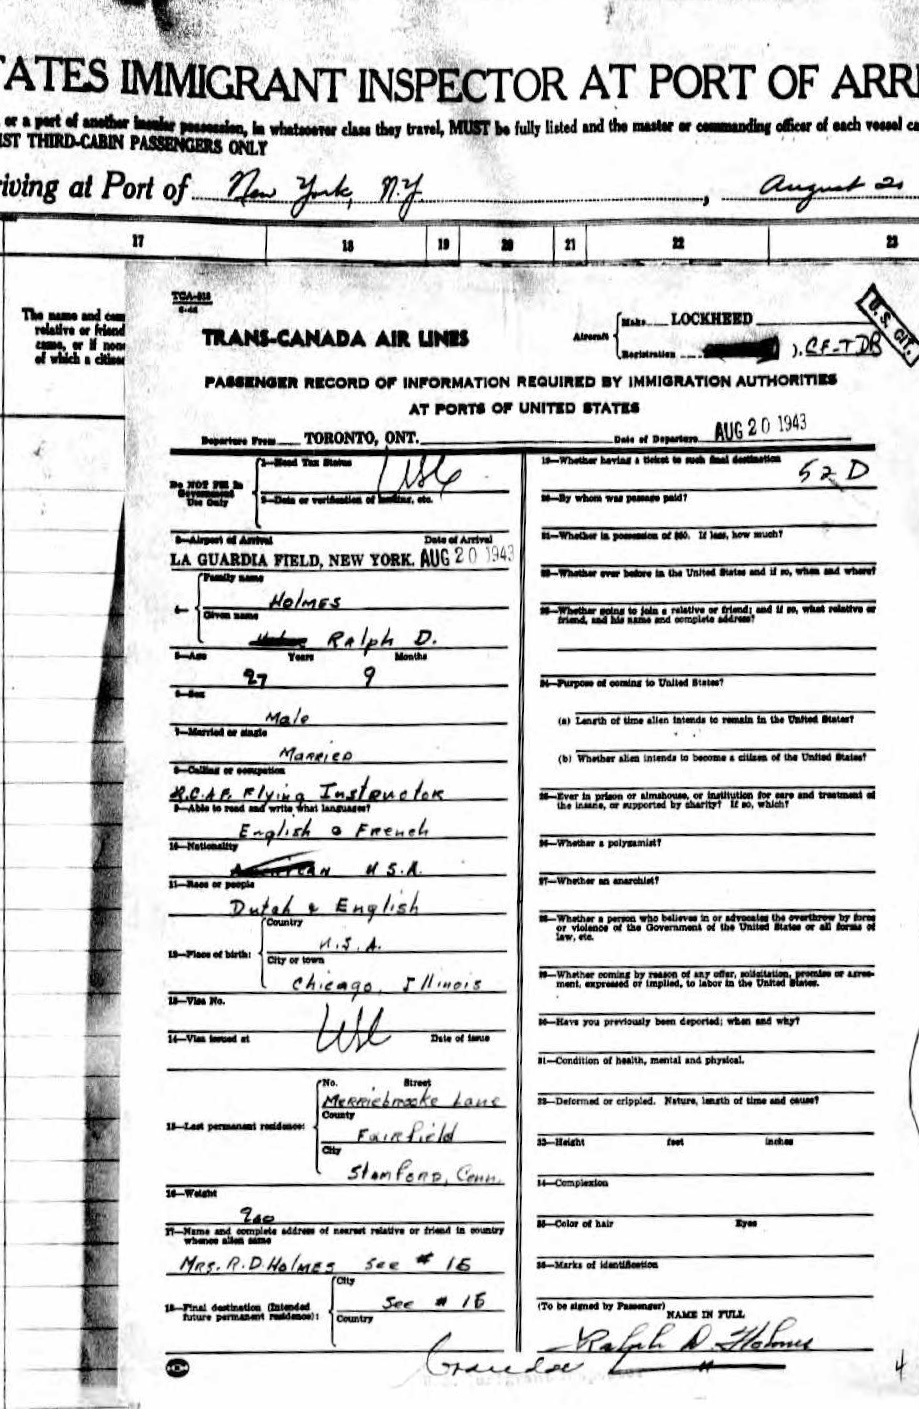 TATES IMMIGRANT INSPECTOR AT PORT OF ARRI
or a part of another insular possession, in whatsoever class they travel, MUST be fully listed and the master or commanding officer of each vessel ca
IST THIRD-CABIN PASSENGERS ONLY
riving at Port of New York, N.Y. , August 20
17 18 19 20 21 22 23
The name and com
relative or friend
came, or if none
of which a citizen
TCA-
TRANS-CANADA AIR LINES
Aircraft Make LOCKHEED
Registration ). CF-TDB
U.S. CIT.
PASSENGER RECORD OF INFORMATION REQUIRED BY IMMIGRATION AUTHORITIES
AT PORTS OF UNITED STATES
Departure From TORONTO, ONT. Date of Departure AUG 20 1943
Do NOT Fill In
Government
Use Only
1—Head Tax Status
2—Data or verification of landing, etc.
3—Airport of Arrival Date of Arrival
LA GUARDIA FIELD, NEW YORK. AUG 20 1943
4— Family name
HOLMES
Given name
Ralph D.
5—Age Years Months
27 9
6—Sex
Male
7—Married or single
MARRIED
8—Calling or occupation
R.C.A.F. Flying Instructor
9—Able to read and write what languages?
English & French
10—Nationality
American U.S.A.
11—Race or people
Dutch & English
12—Place of birth: Country
U.S.A.
City or town
Chicago, Illinois
13—Visa No.
14—Visa issued at Date of issue
15—Last permanent residence: No. Street
Merriebrooke Lane
County
Fairfield
City
Stamford, Conn.
16—Weight
200
17—Name and complete address of nearest relative or friend in country
whence alien came
Mrs. R.D. Holmes See # 15
18—Final destination (Intended
future permanent residence): City
See # 15
Country
19—Whether having a ticket to such final destination
52 D
20—By whom was passage paid?
21—Whether in possession of $50. If less, how much?
22—Whether ever before in the United States and if so, when and where?
23—Whether going to join a relative or friend; and if so, what relative or
friend, and his name and complete address?
24—Purpose of coming to United States?
(a) Length of time alien intends to remain in the United States?
(b) Whether alien intends to become a citizen of the United States?
25—Ever in prison or almshouse, or institution for care and treatment of
the insane, or supported by charity? If so, which?
26—Whether a polygamist?
27—Whether an anarchist?
28—Whether a person who believes in or advocates the overthrow by force
or violence of the Government of the United States or all forms of
law, etc.
29—Whether coming by reason of any offer, solicitation, promise or agree-
ment, expressed or implied, to labor in the United States.
30—Have you previously been deported; when and why?
31—Condition of health, mental and physical.
32—Deformed or crippled. Nature, length of time and cause?
33—Height feet inches
34—Complexion
35—Color of hair Eyes
36—Marks of identification
(To be signed by Passenger)
NAME IN FULL
Ralph D. Holmes
4